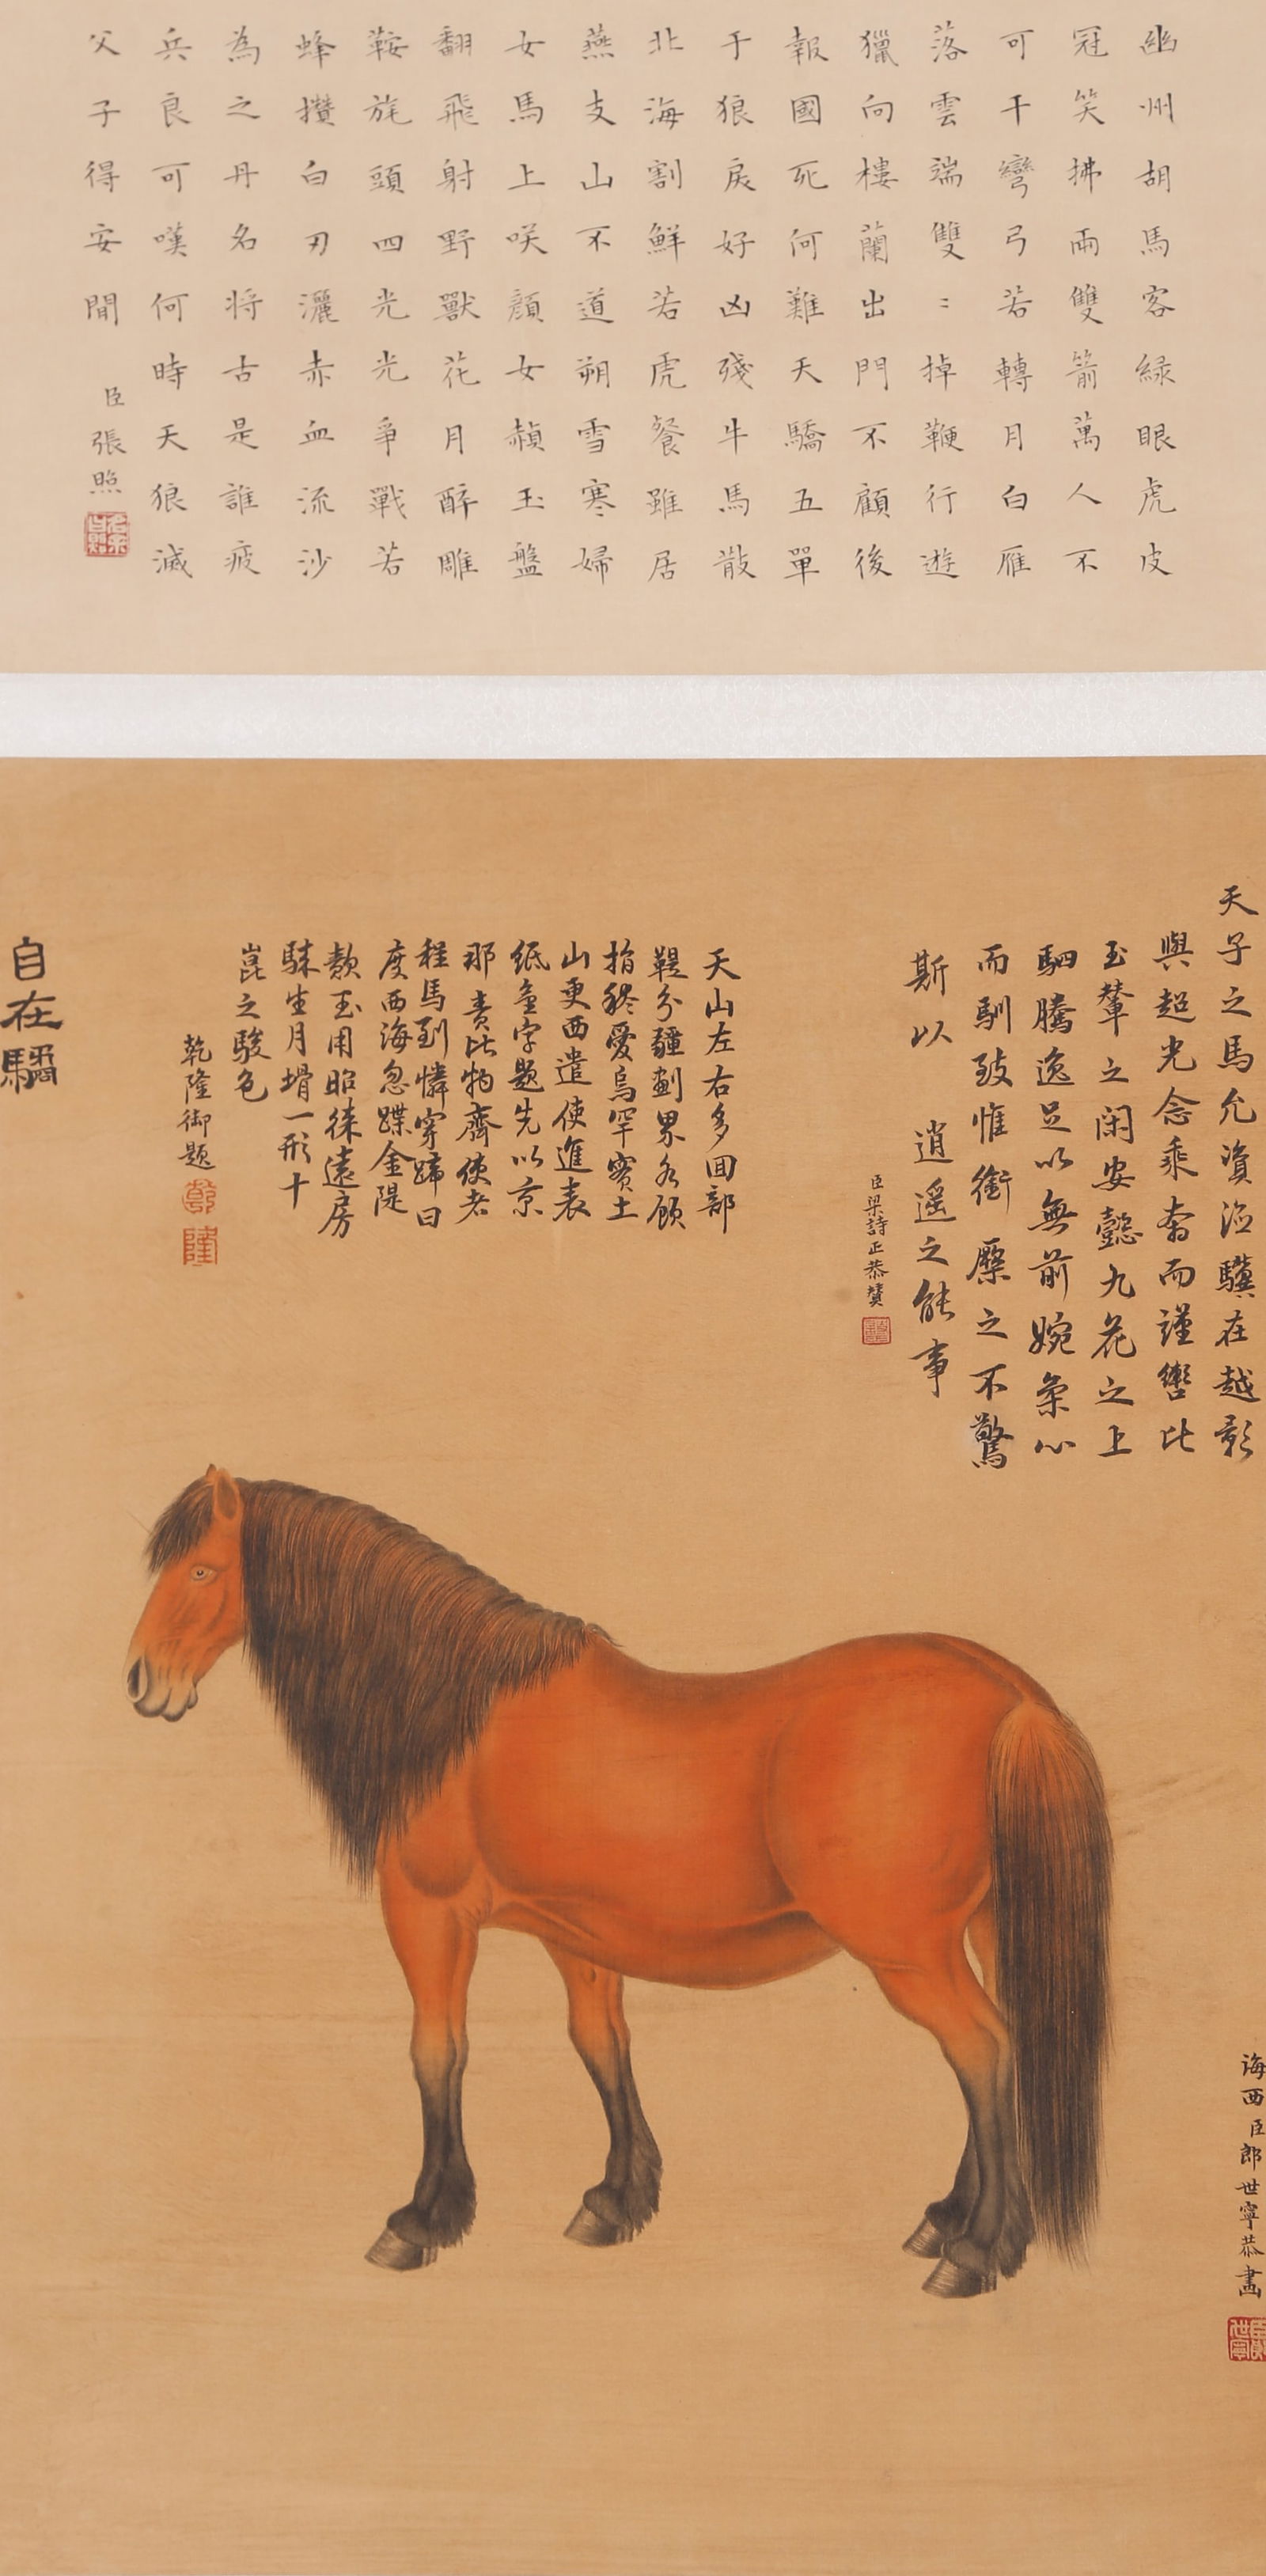 幽州胡馬客緑眼虎皮
冠笑拂兩雙箭萬人不
可干彎弓若轉月白雁
落雲端雙〻掉鞭行遊
獵向樓蘭出門不顧後
報國死何難天驕五單
于狼戾好凶殘牛馬散
北海割鮮若虎餐雖居
燕支山不道朔雪寒婦
女馬上咲顔女赪玉盤
翻飛射野獸花月醉雕
鞍旄頭四光光爭戰若
蜂攢白刃灑赤血流沙
為之丹名将古是誰疲
兵良可嘆何時天狼滅
父子得安閒
臣張照
天子之馬允資
驥在越影
與超光念乘而謹轡比
玉輦之閑安懿九花之上
駟騰逸足以無前婉
心
而馴致惟銜橜之不驚
斯以 逍遥之能事
臣梁詩正恭贊
天山左右多囬部
鞮分疆劃界各顧
指愛烏罕賓土
山更西遣使進表
紙金字題先以京
那責比物齊使者
程馬到憐穿蹄曰
度西海忽蹀金隄
玉用昭徠遠房
騋生月一形十
崑之駿色
乾隆御題
乾
隆
自在驈
海西臣郎世寧恭畫